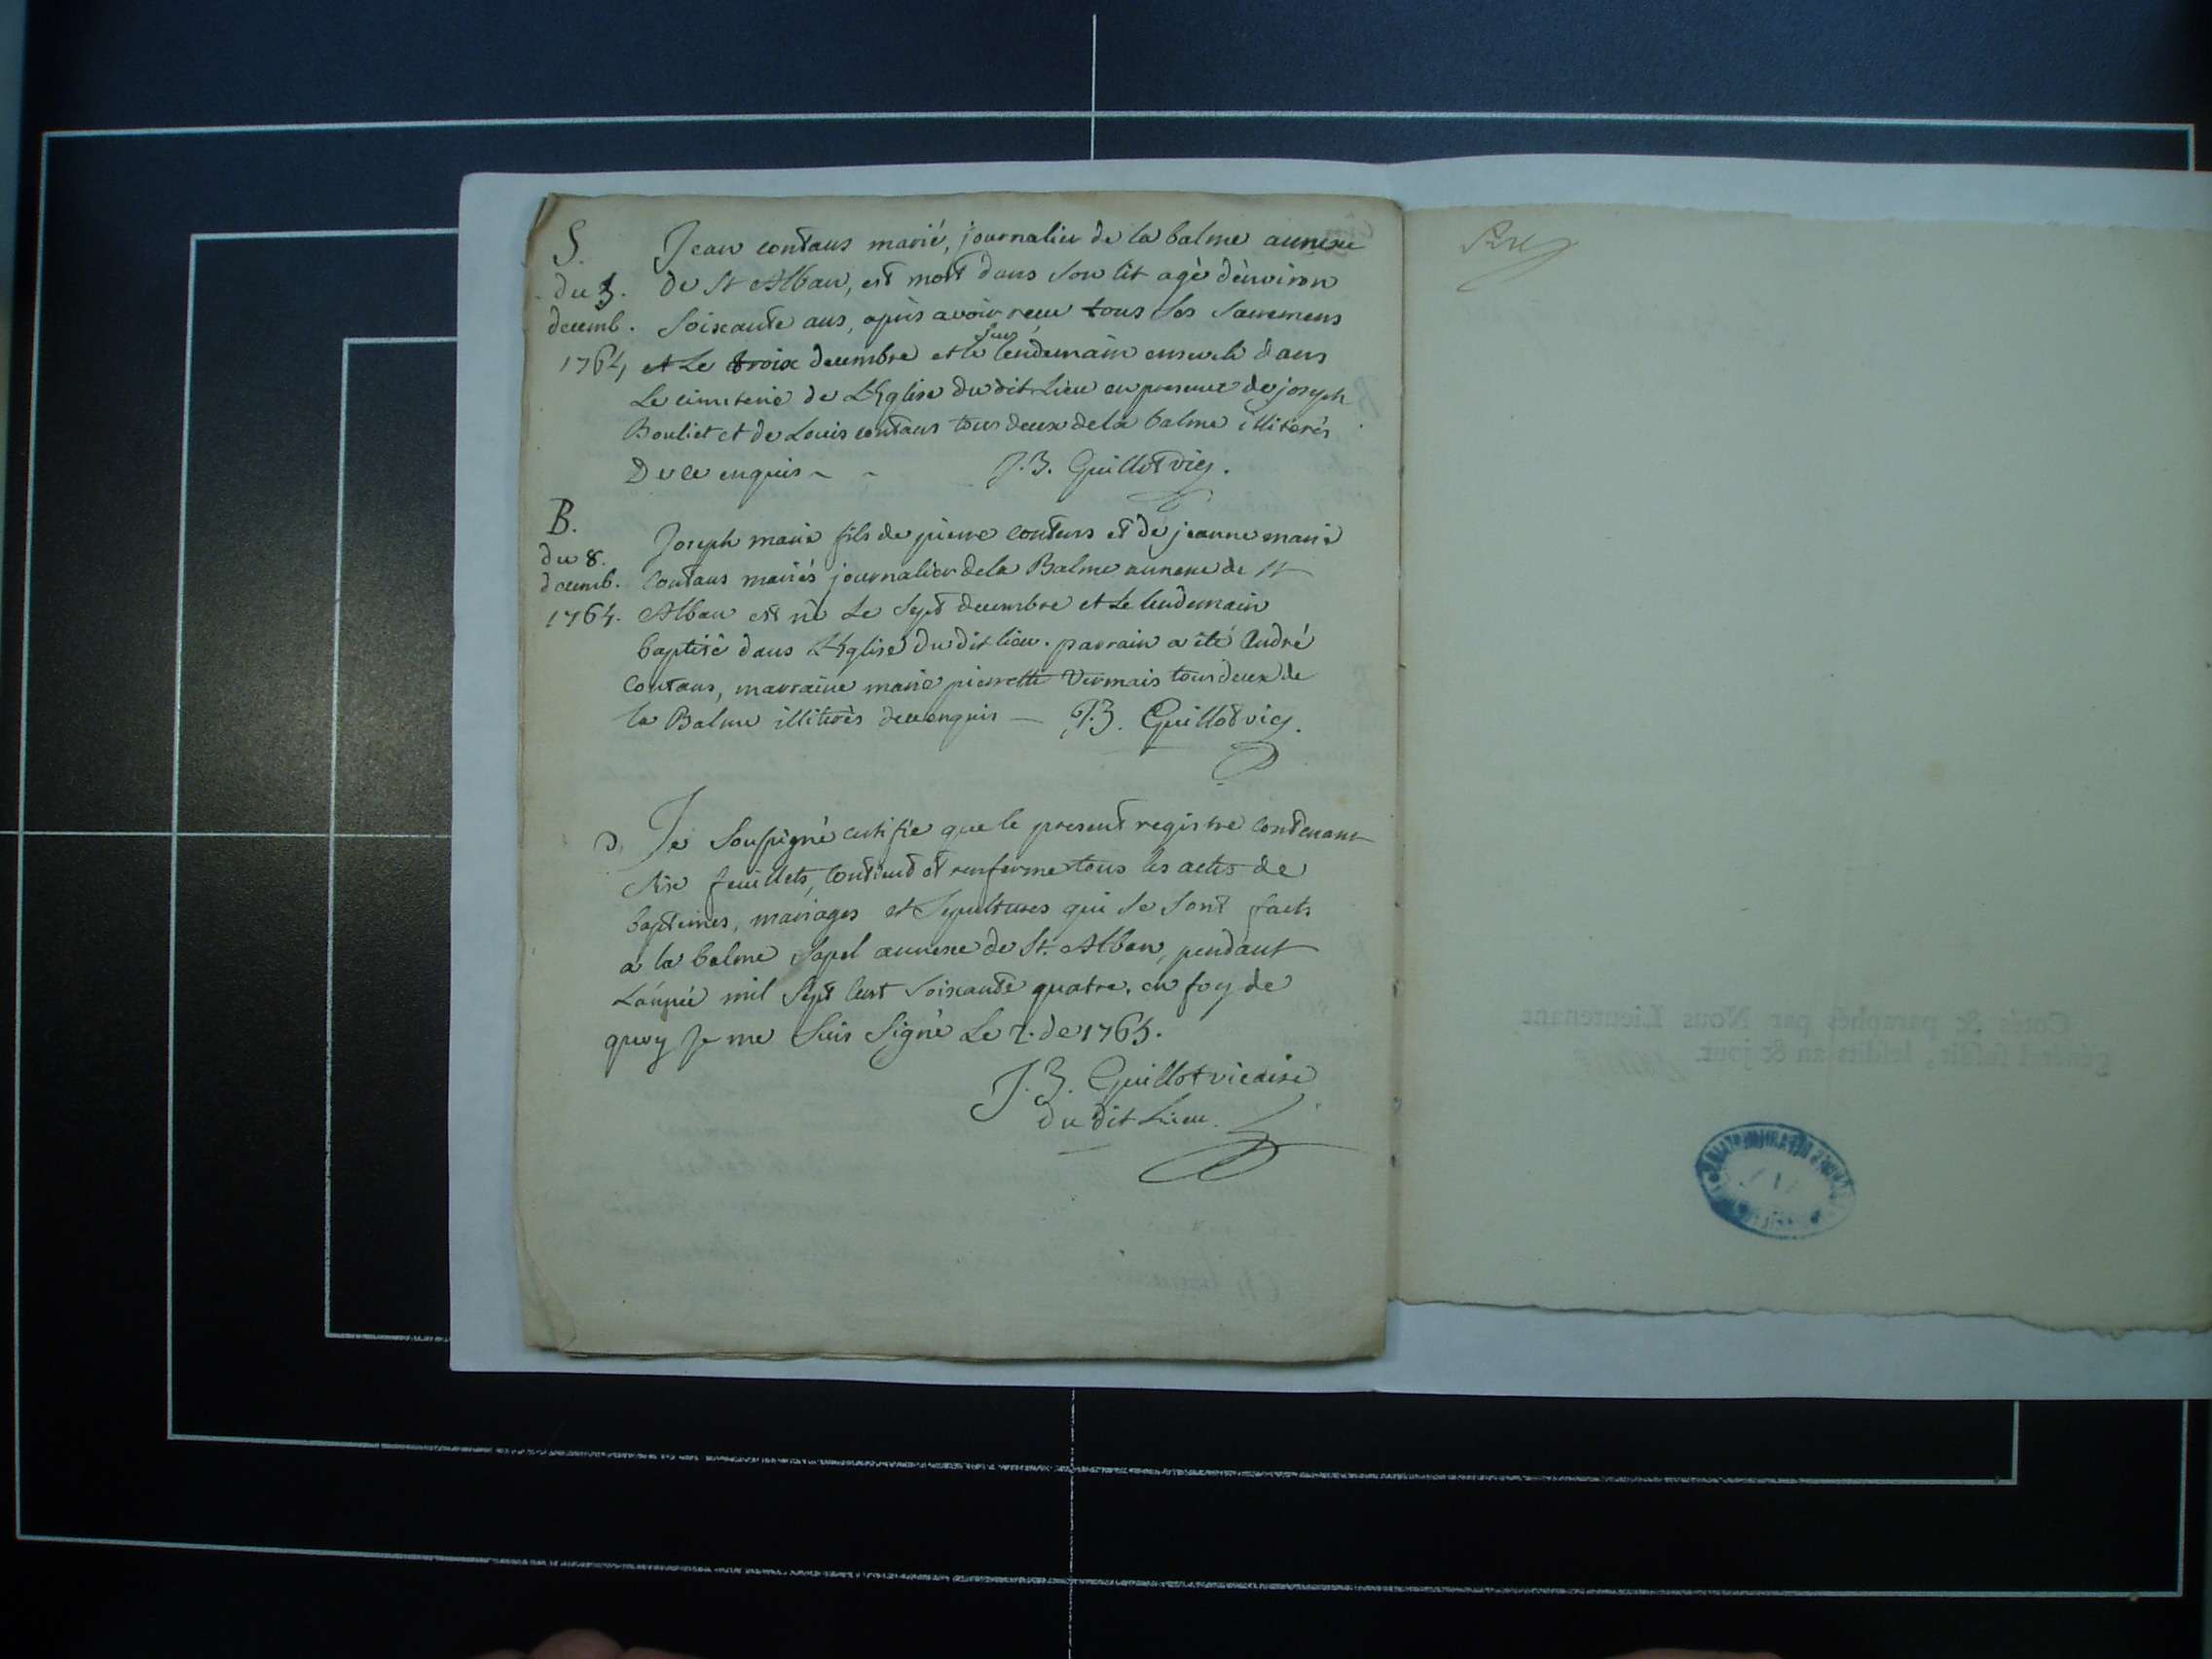 S.
du 3.
decemb.
1764
Jean contans marié, journalier de la balme annexe
de St Alban, est mort dans son lit agé d'environ
soixante ans, après avoir reçu tous les sacremens
et Le troix decembre et le lendemain enseveli dans
Le cimeterie de L'Eglise du dit Lieu en presence de joseph
Bouliet et de Louis contans tous deux de la balme illiterés
De ce enquis - - J.B. Guillot vic.
B.
du 8.
decemb.
1764.
Joseph marie fils de pierre contans et de jeanne marie
Contans mariés journalier de la Balme annexe de St
Alban est né Le sept decembre et Le lendemain
baptisé dans L'Eglise du dit lieu. parrain a été André
Contans, marraine marie pierrette Vermais tous deux de
la Balme illiterés de ce enquis — J.B. Guillot vic.
Je Soussigné certifie que le present registre Contenant
six feuillets, Contient et renferme tous les actes de
baptemes, mariages et Sepultures qui se sont faits
a la balme Sapel annexe de St. Alban, pendant
L'année mil sept cent soixante quatre. en foy de
quoy Je me suis signé Le 7. de 1765.
J.B. Guillot vicaire
du dit Lieu.
Cotés & paraphés par Nous Lieutenant
général susdit, lesdits an & jour.